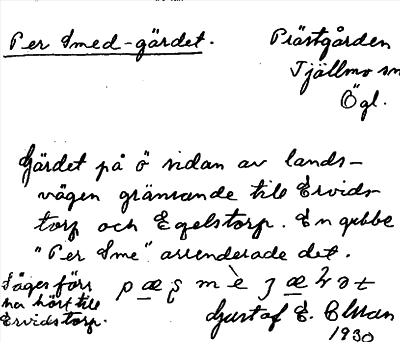 Per Smed-gärdet.
Prästgården
Tjällmo sn
Ögl.
Gärdet på ö sidan av lands-
vägen gränsande till Ervids-
torp och Egelstorp. En gubbe
"Per Sme" arrenderade det.
Säges förr
ha hört till
Ervidstorp.
Gustaf E. Olsson
1930